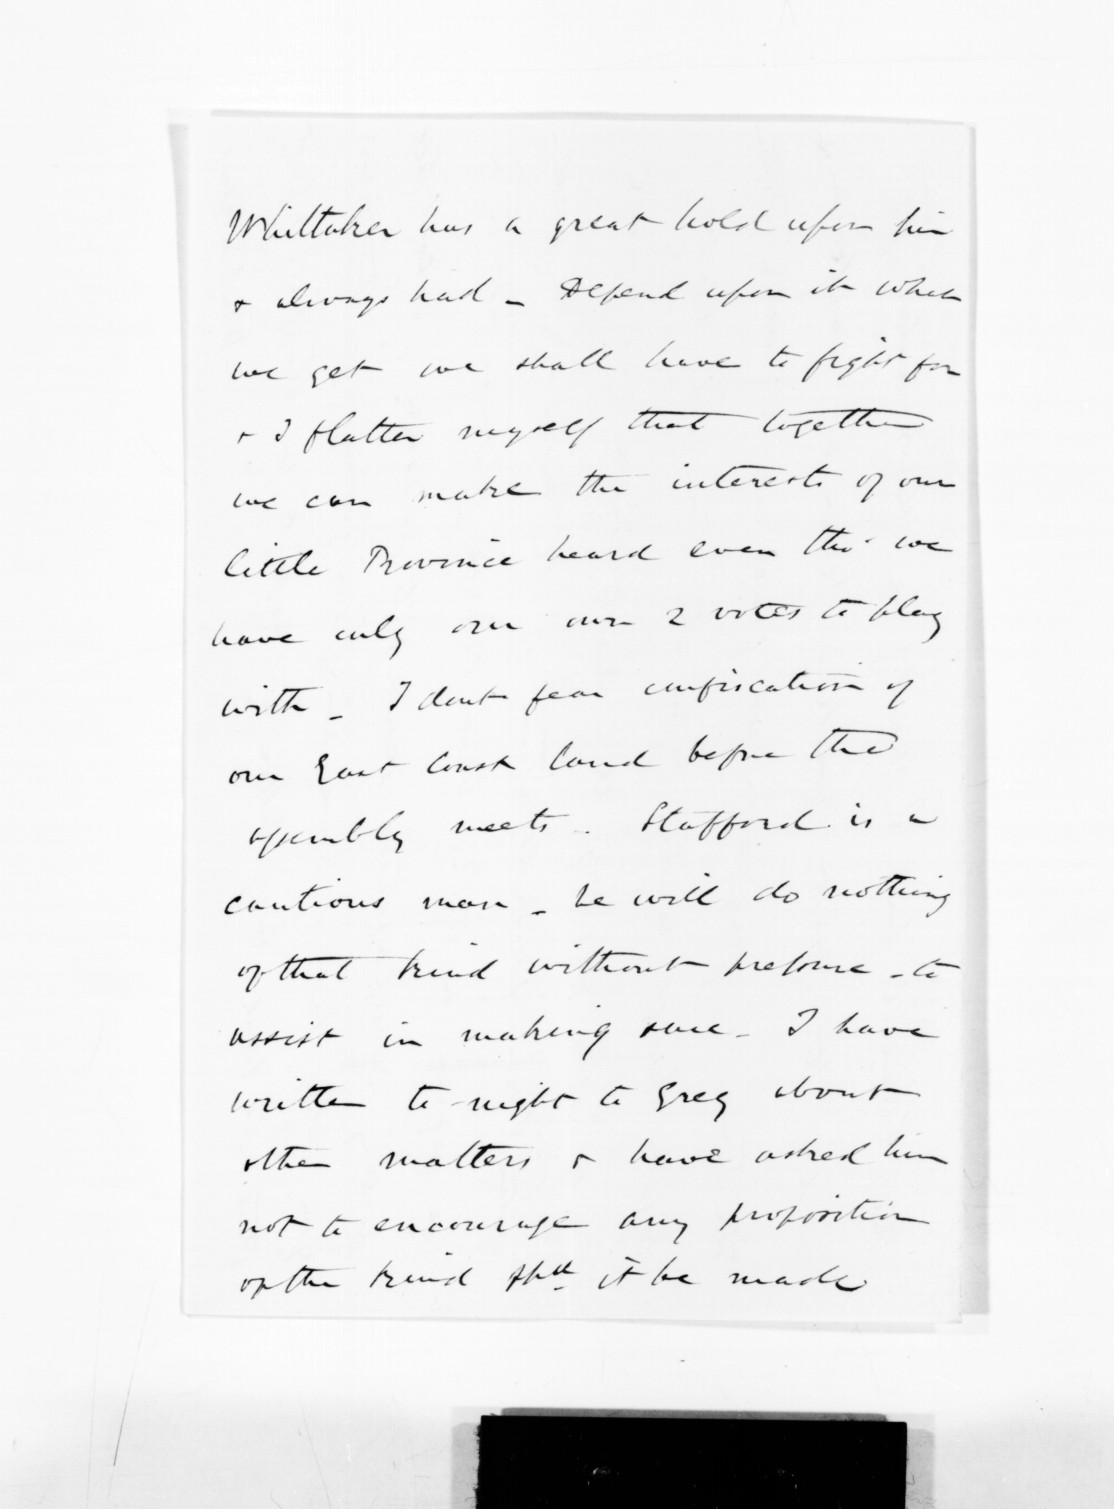 Whittaker has a great hold upon him
& always had - Depend upon it what
we get we shall have to fight for
& I flatter myself that together
we can make the interests of our
little Province heard even tho' we
have only our own 2 votes to play
with - I dont fear confiscation of
our East Coast land before the
assembly meets. Stafford is a
cautious man - he will do nothing
of that kind without pressure - to
assist in making sure - I have
written to-night to Grey about
other matters & have asked him
not to encourage any proposition
of the kind shd it be made